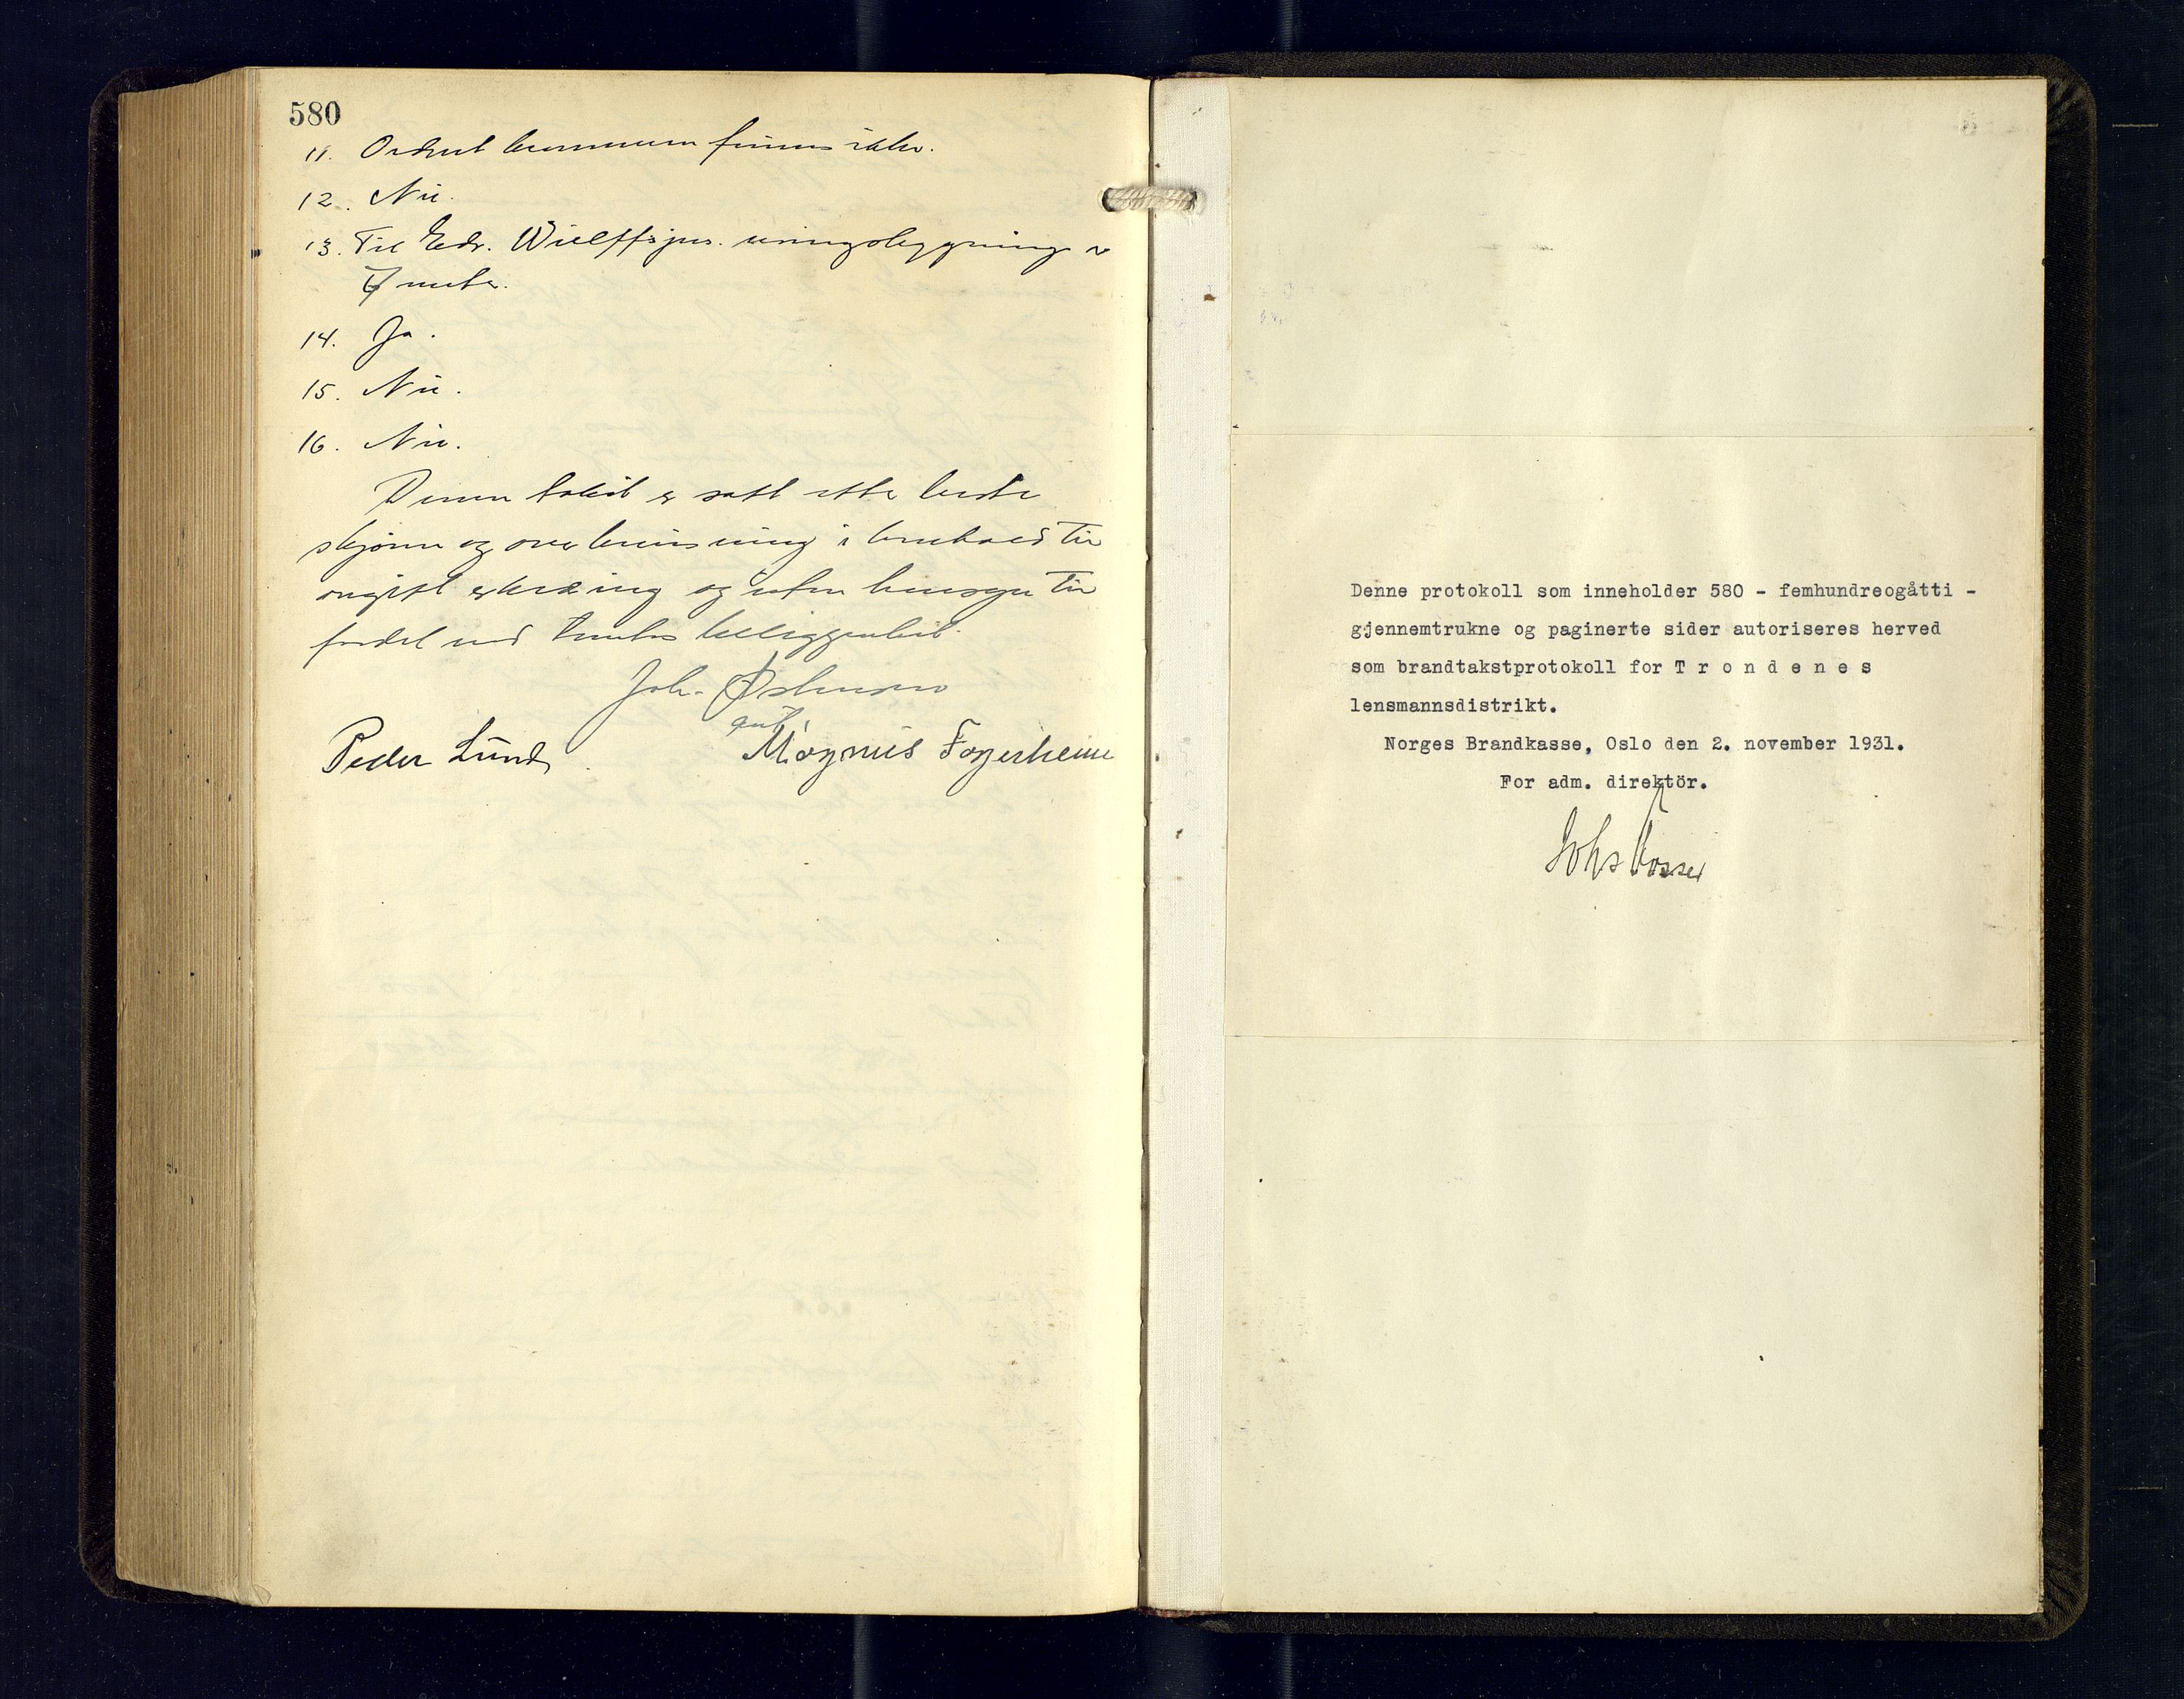 580
11. Ordnet brannvern finnes ikke.
12. Nei.
13. Til Edv. våningsbygning er
7 meter.
14. Ja.
15. Nei.
16. Nei.
Denne takst er satt efter beste
skjønn og overbevisning i henhold til
avgitt erklæring og uten hensyn til
fordel ved tomtens beliggenhet.
Joh.
Peder Lund. Magnus Fagerheim
Denne protokoll som inneholder 580 - femhundreogåtti -
gjennemtrukne og paginerte sider autoriseres herved
som brandtakstprotokoll for T r o n d e n e s
lensmannsdistrikt.
Norges Brandkasse, Oslo den 2. november 1931.
For adm. direktör.